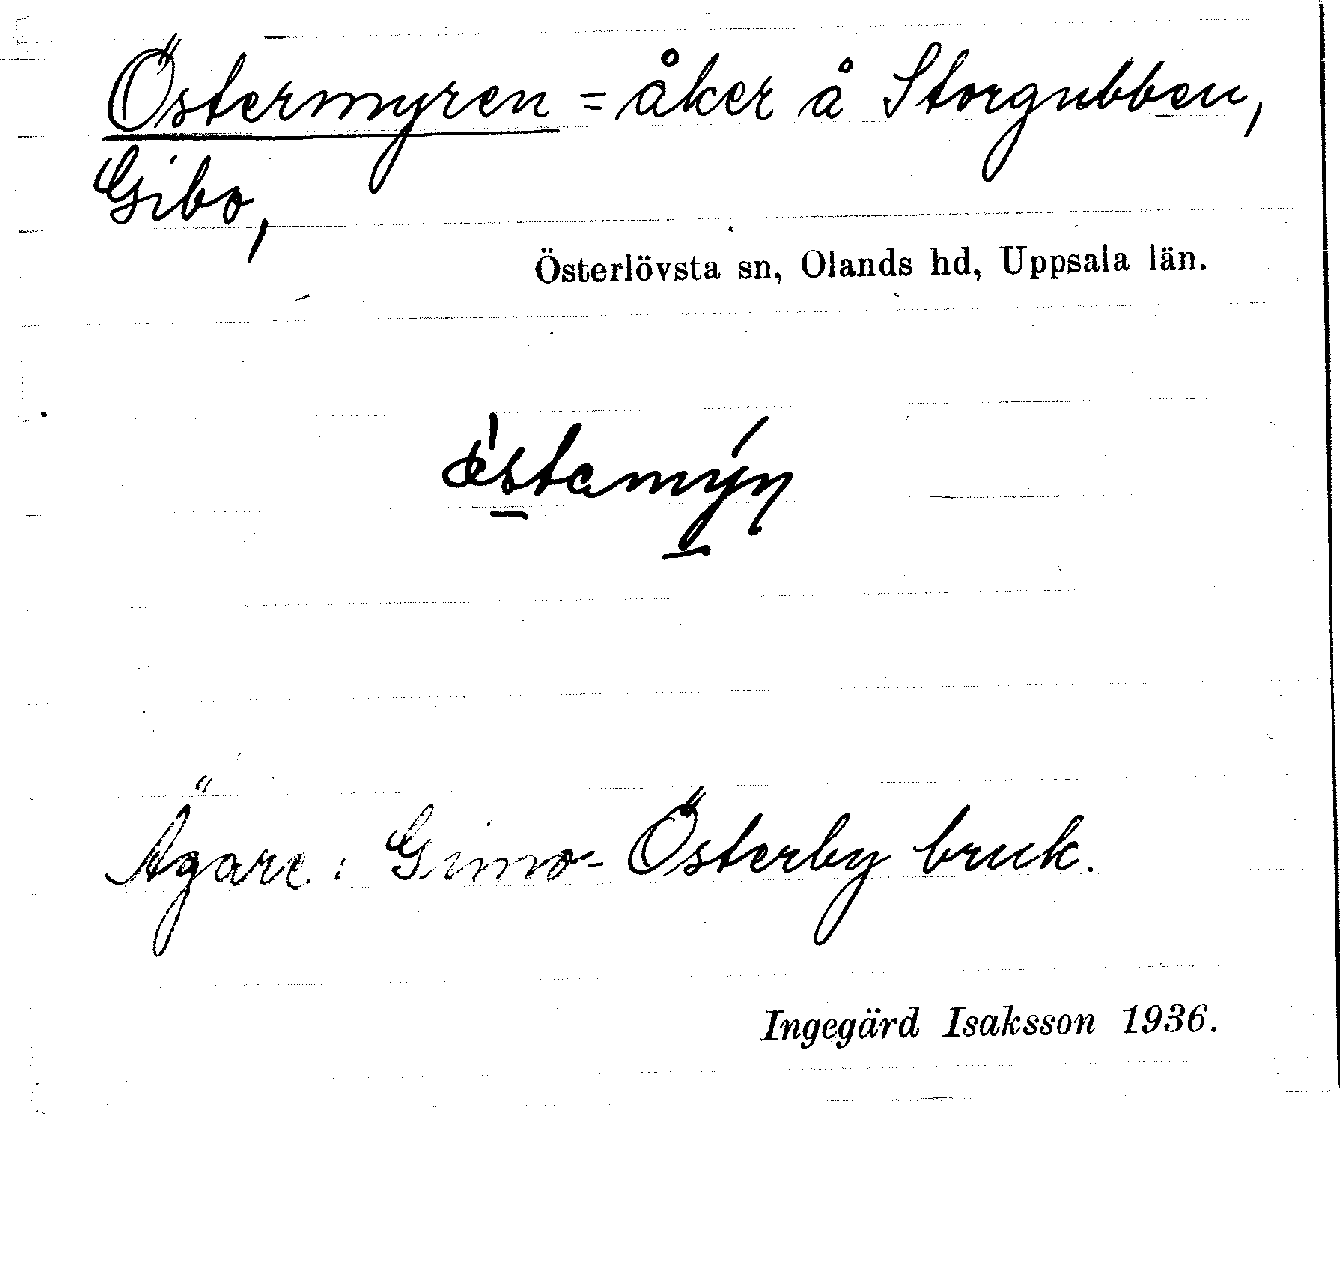 Östermyren = åker å Storgubben,
Gibo,
Österlövsta sn, Olands hd, Uppsala län.
Ägare: Gimo-Österby bruk.
Ingegärd Isaksson 1936.